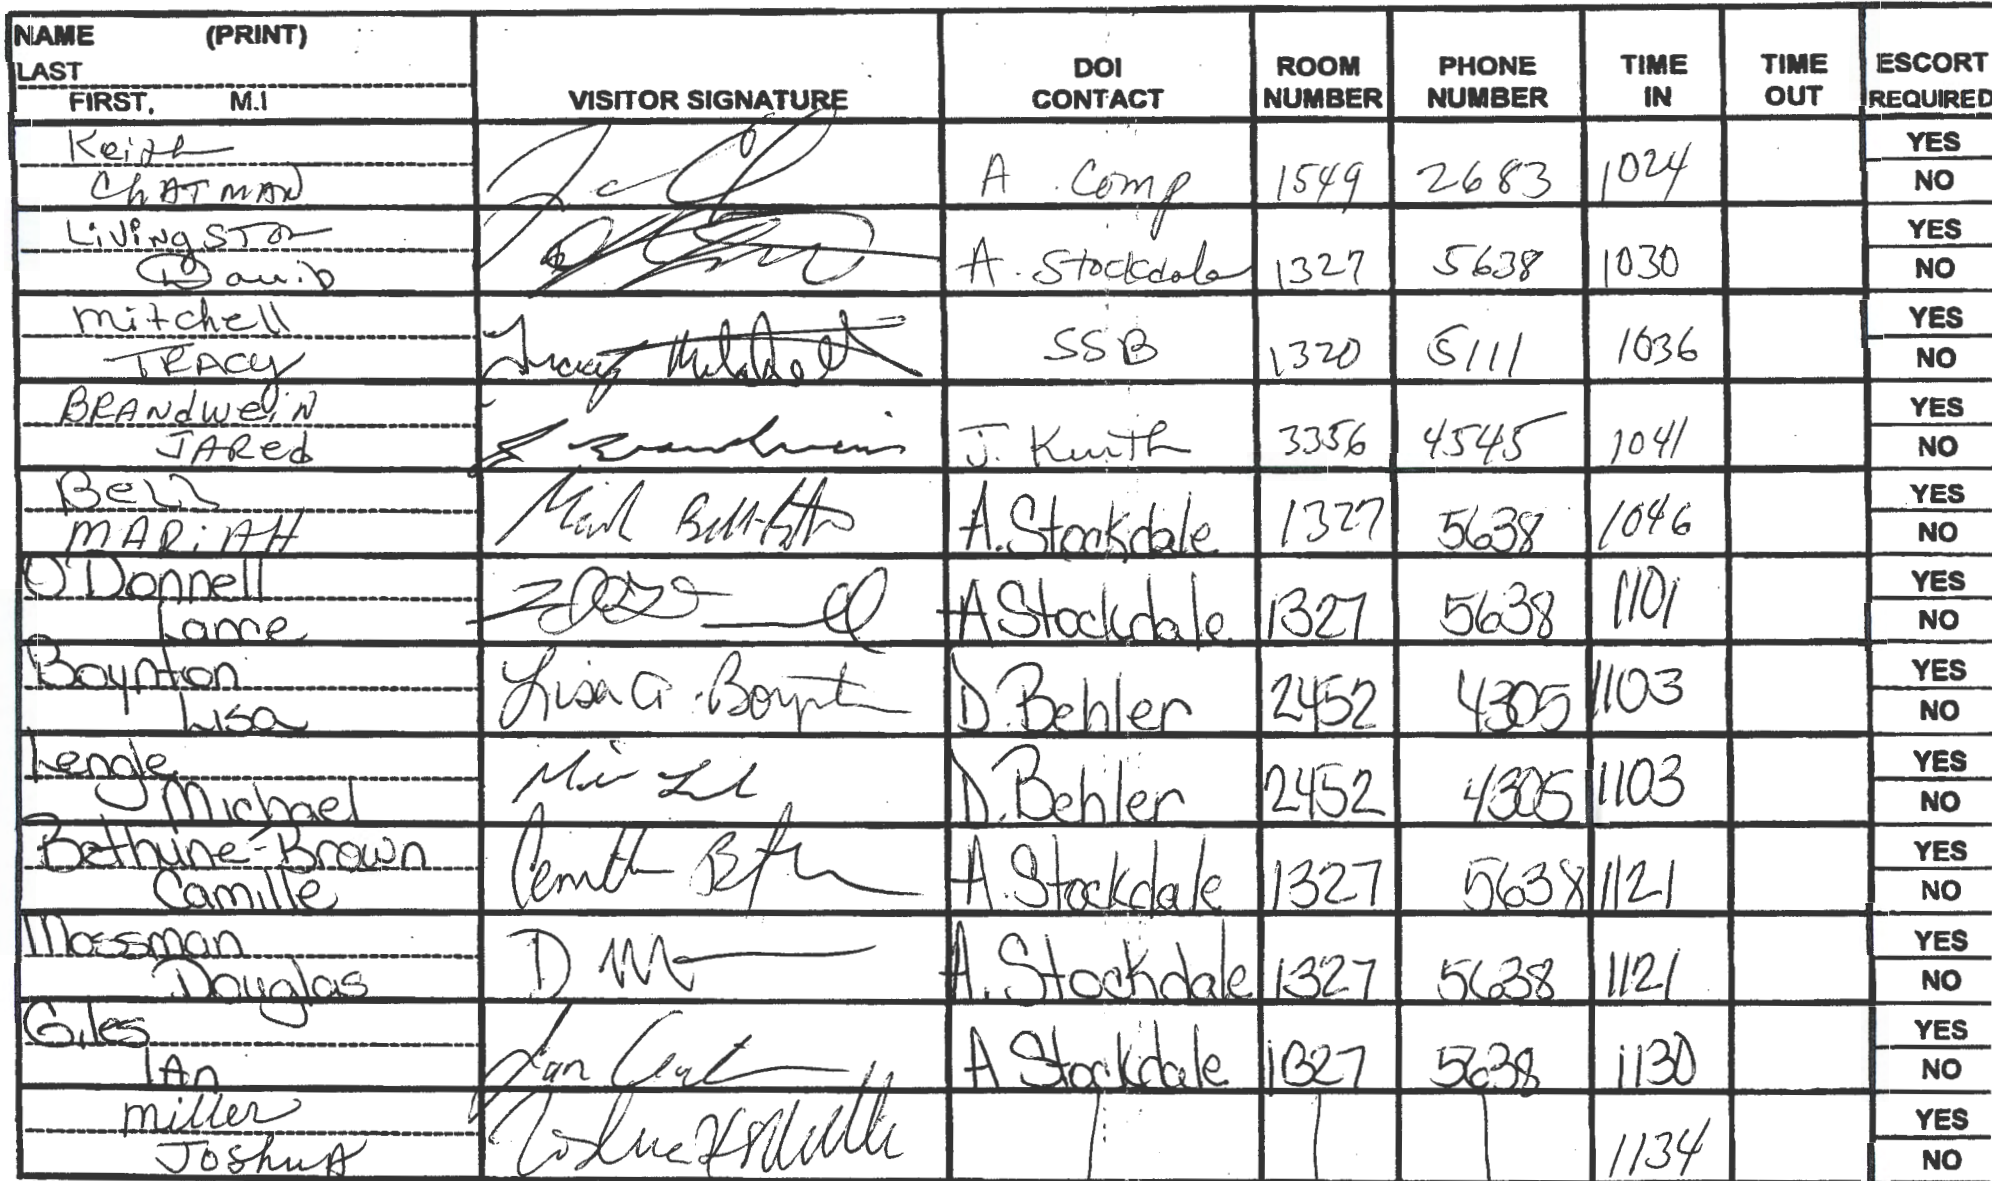 NAME (PRINT)
LAST
FIRST, M.I
VISITOR SIGNATURE
DOI CONTACT
ROOM NUMBER
PHONE NUMBER
TIME IN
TIME OUT
ESCORT REQUIRED
Keith
ChATMAN
A. Comp 1549 2683 1024 YES NO
LiViNgSTon
DaviD
A. Stockdale 1327 5638 1030 YES NO
mitchell
TRACy
Tracy Mitchell SSB 1320 5111 1036 YES NO
BRANdWeiN
JARed
J. Kurth 3356 4545 1041 YES NO
Bell
MARiAH
A. Stockdale 1327 5638 1046 YES NO
O'Donnell
Lance
A Stockdale 1327 5638 1101 YES NO
Boynton
Lisa
Lisa A. Boynton D. Behler 2452 4305 1103 YES NO
Lengle
Michael
D. Behler 2452 4305 1103 YES NO
Bethune-Brown
Camille
A. Stockdale 1327 5638 1121 YES NO
Mossman
Douglas
A. Stockdale 1327 5638 1121 YES NO
Giles
IAn
A Stockdale 1327 5638 1130 YES NO
miller
JoShuA
1134 YES NO